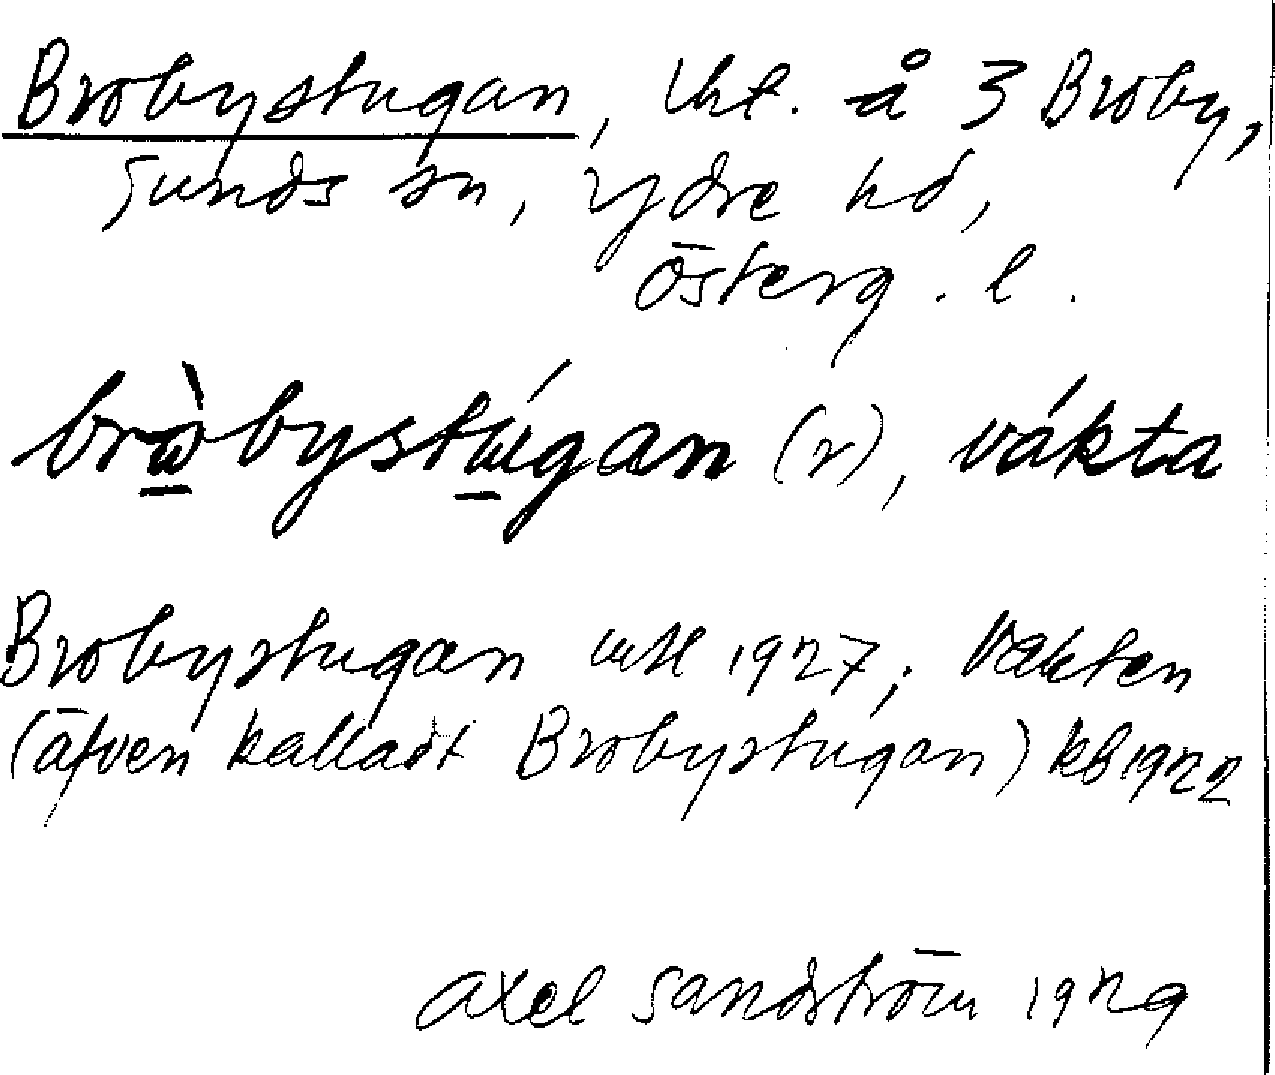 Brobystugan, lht. å 3 Broby,
Sunds sn, Ydre hd,
Österg. l.
brὼbystώgan (r), vákta
Brobystugan mtl 1927; Vakten
(äfven kalladt Brobystugan) kb 1922
Axel Sandström 1929